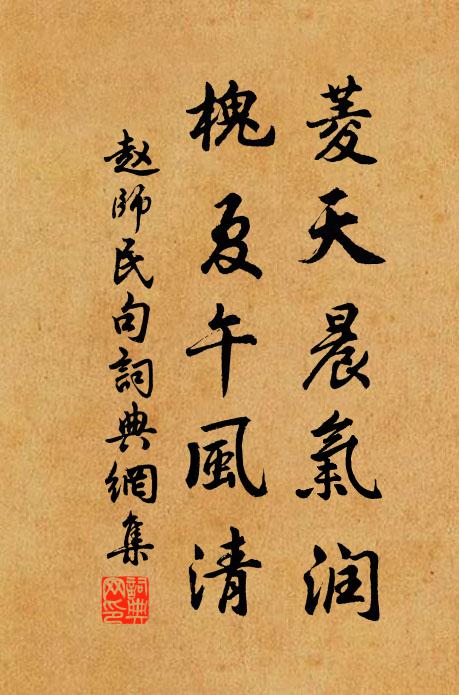 菱天晨氣润
槐夏午風清
赵師民句詞典網集
詞典网印